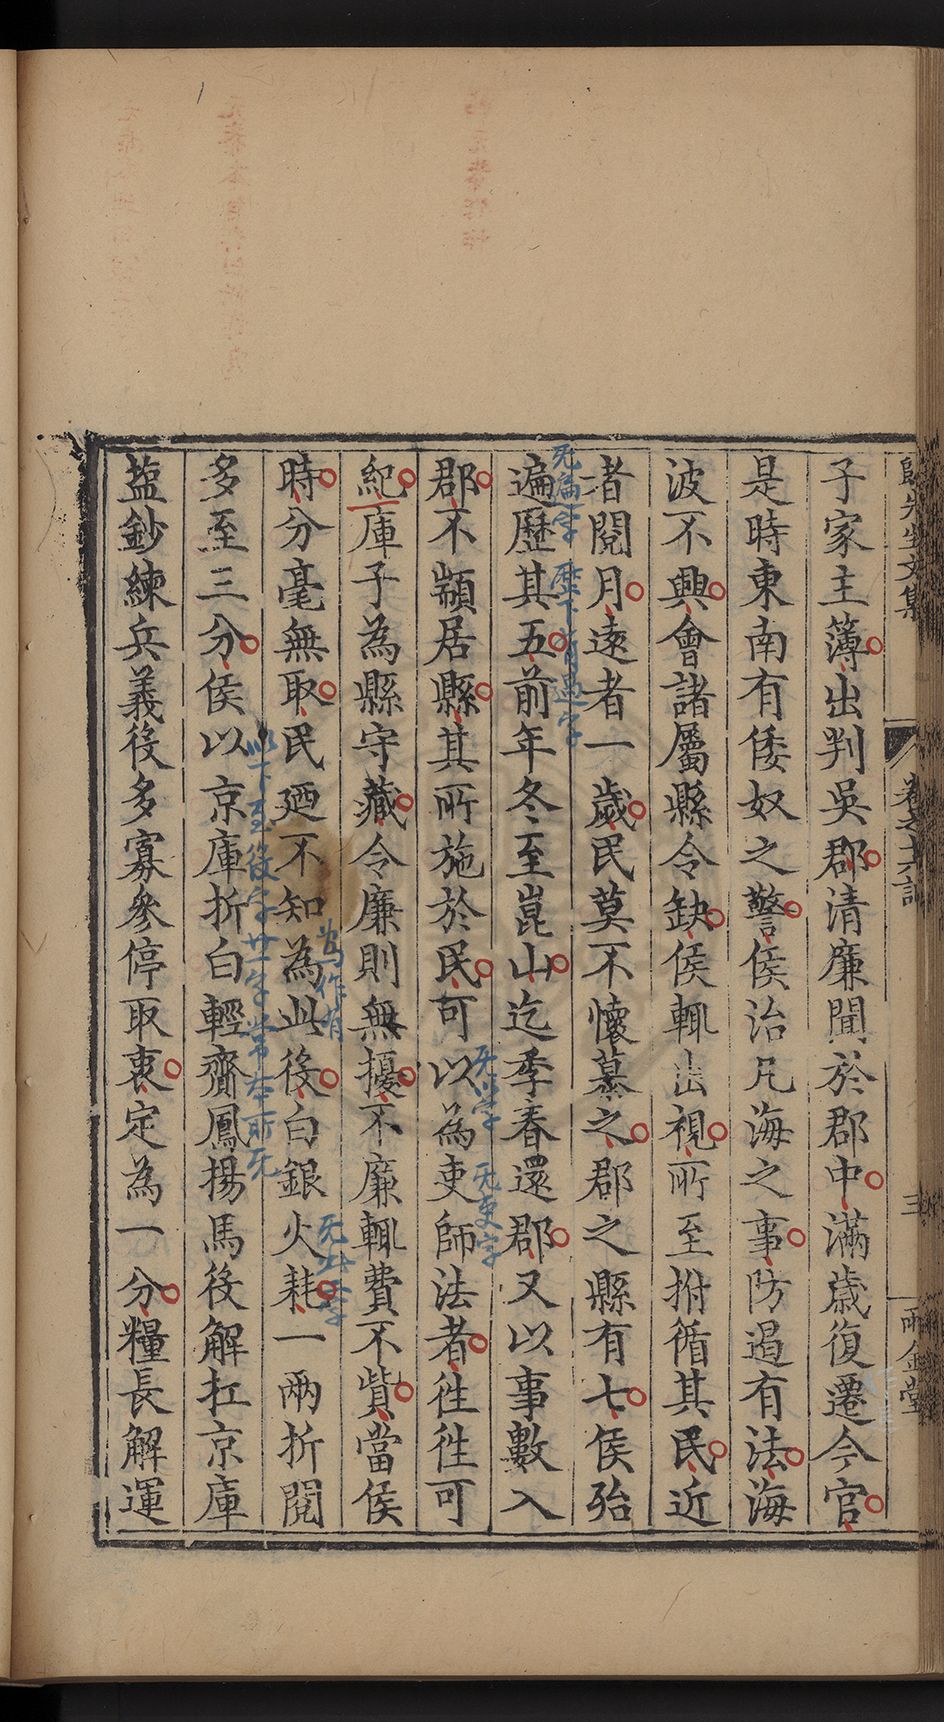 歸先生文集
卷之十六記
三
雨金堂
子家主簿出判吳郡清廉聞於郡中滿歲復遷今官
是時東南有倭奴之警侯治凡海之事防遏有法海
波不興會諸屬縣令缺侯輒出視所至拊循其民近
者閱月遠者一歲民莫不懷慕之郡之縣有七侯殆
无遍字
歷下有過字
遍歷其五前年冬至崑山迄季春還郡又以事數入
郡不顓居縣其所施於民可以為吏師法者徃徃可
无以字
无吏字
紀庫子為縣守藏令廉則無擾不廉輒費不貲當侯
時分毫無取民廼不知為此役白銀火耗一兩折閱
為作有
多至三分侯以京庫折白輕齎鳳揚馬役解扛京庫
以下至役字廿字常本所无
盐鈔練兵義役多寡參停取衷定為一分糧長解運